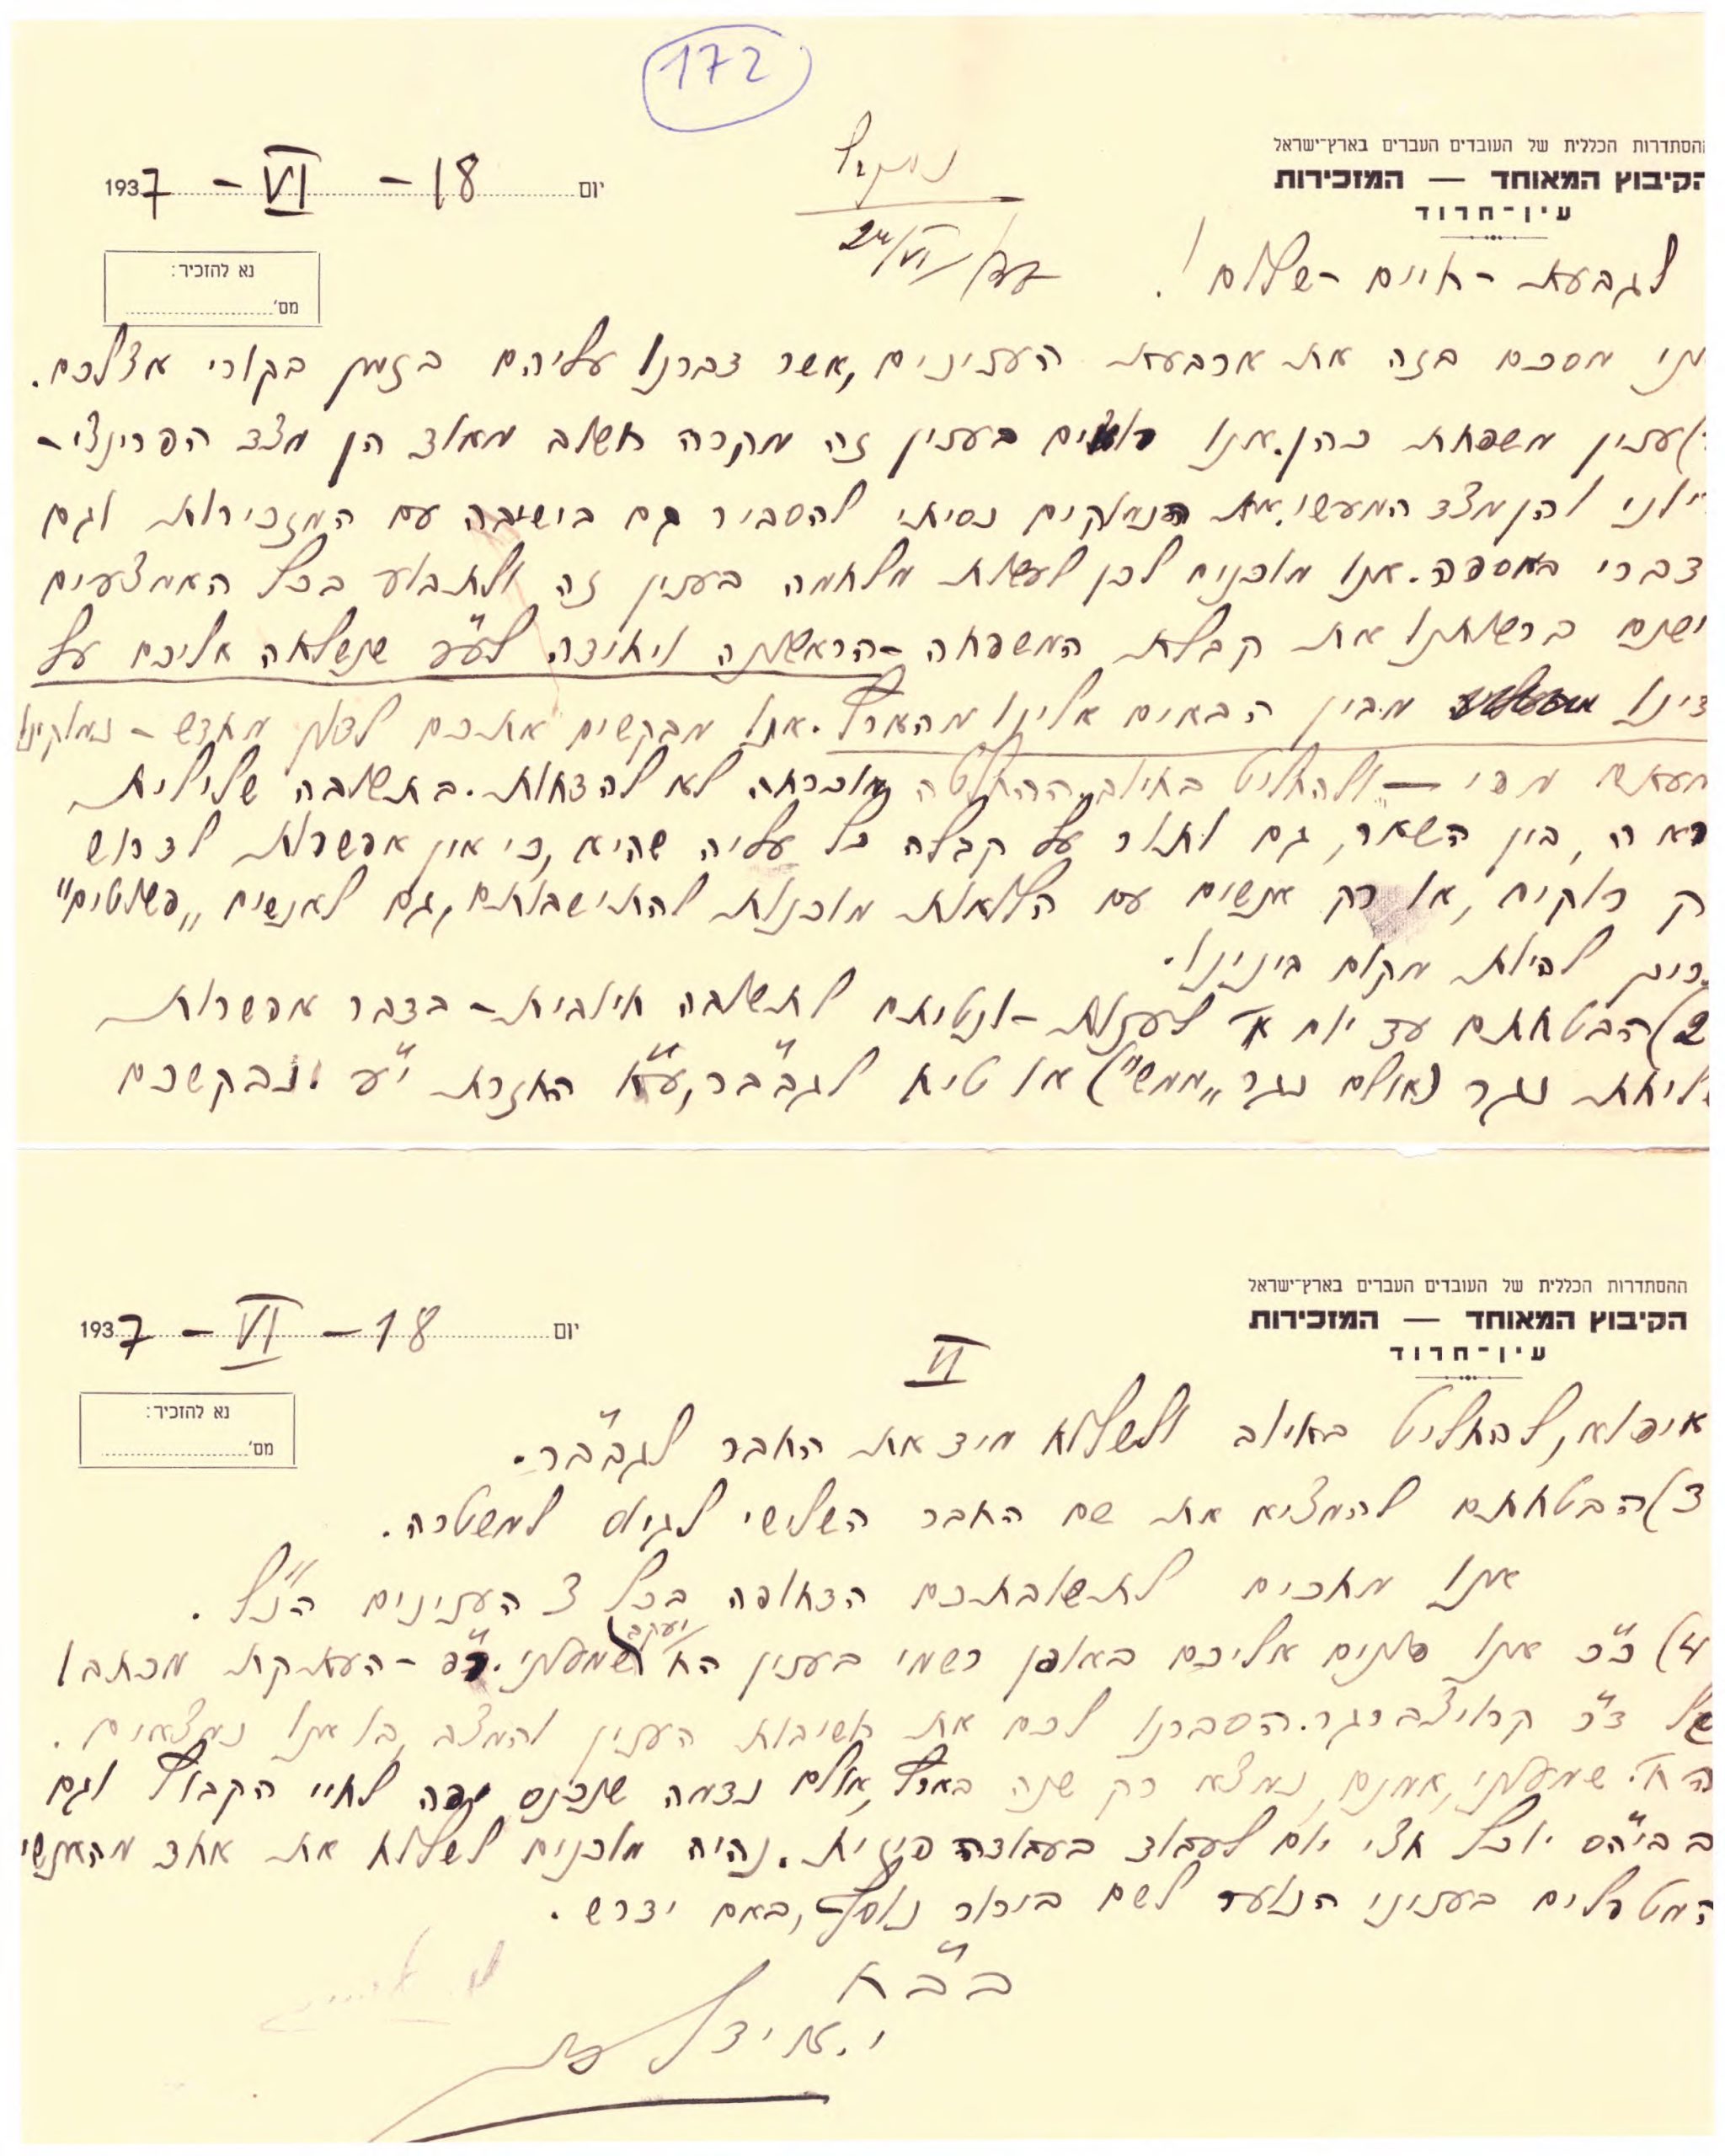 172
ההסתדרות הכללית של העובדים העברים בארץ־ישראל
הקיבוץ המאוחד — המזכירות
עין־חרוד
יום 18 - VI - 1937
נא להזכיר:
מס'
24/VI/37
לגבעת - חיים - שלום!
מסכם בזה את ארבעת הענינים, אשר דברנו עליהם בזמן בקורי אצלכם.
ענין משפחת כהן. אנו רואים בענין זה מקרה חשוב מאוד הן מצד הפרינצי-
והן מצד המעשי. את הנמוקים נסיתי להסביר גם בישיבה עם המזכירות וגם
דברי באספה. אנו מוכנים לכן לעשות מלחמה בענין זה ולתבוע בכל האמצעים
ישנם ברשותנו את קבלת המשפחה - הראשונה ויחידה לע"ע שנשלחה אליכם על
ידינו מבין הבאים אלינו מהארץ. אנו מבקשים אתכם לדון מחדש - נמוקינו
— ולהחליט בחיוב. ההחלטה מוכרחה לא להדחות. בתשובה שלילית
ראה, בין השאר, גם ותור על קבלה כל עליה שהיא, כי אין אפשרות לדרוש
רק רוקים, או רק אנשים עם הלואות מוכנות להתישבותם, וגם לאנשים "פשוטים"
צריך להיות מקום בינינו.
2) הבטחתם עד יום א' לענות - ונטיתם לתשובה חיובית - בדבר אפשרות
שליחת נגר (אולם נגר "ממש") או טיח לגב"ר, ע"י האזרת י"ע. נבקשכם
ההסתדרות הכללית של העובדים העברים בארץ־ישראל
הקיבוץ המאוחד — המזכירות
עין־חרוד
יום 18 - VI - 1937
נא להזכיר:
מס'
VI
איפוא, להחליט בחיוב ולשלוח מיד את החבר לגב"ר.
3) הבטחתם להמציא את שם החבר השלישי לגיוס למשטרה.
אנו מחכים לתשובתכם הדחופה בכל 3 הענינים הנ"ל.
4) כ"כ אנו פונים אליכם באופן רשמי בענין הח' יעקב שמעוני. ר"פ - העתקת מכתבו
של ד"ר קרויצברגר. הסברנו לכם את חשיבות הענין והמצב בו אנו נמצאים.
הח' שמעוני, אמנם, נמצא רק שנה בארץ, אולם נדמה שנכנס יפה לחיי הקבוץ וגם
בביה"ס יוכל חצי יום לעבוד בעבודה פיזית. נהיה מוכנים לשלוח את אחד מהאנשים
המטפלים בעניני הנוער לשם בירור נוסף, באם ידרש.
בב"ח